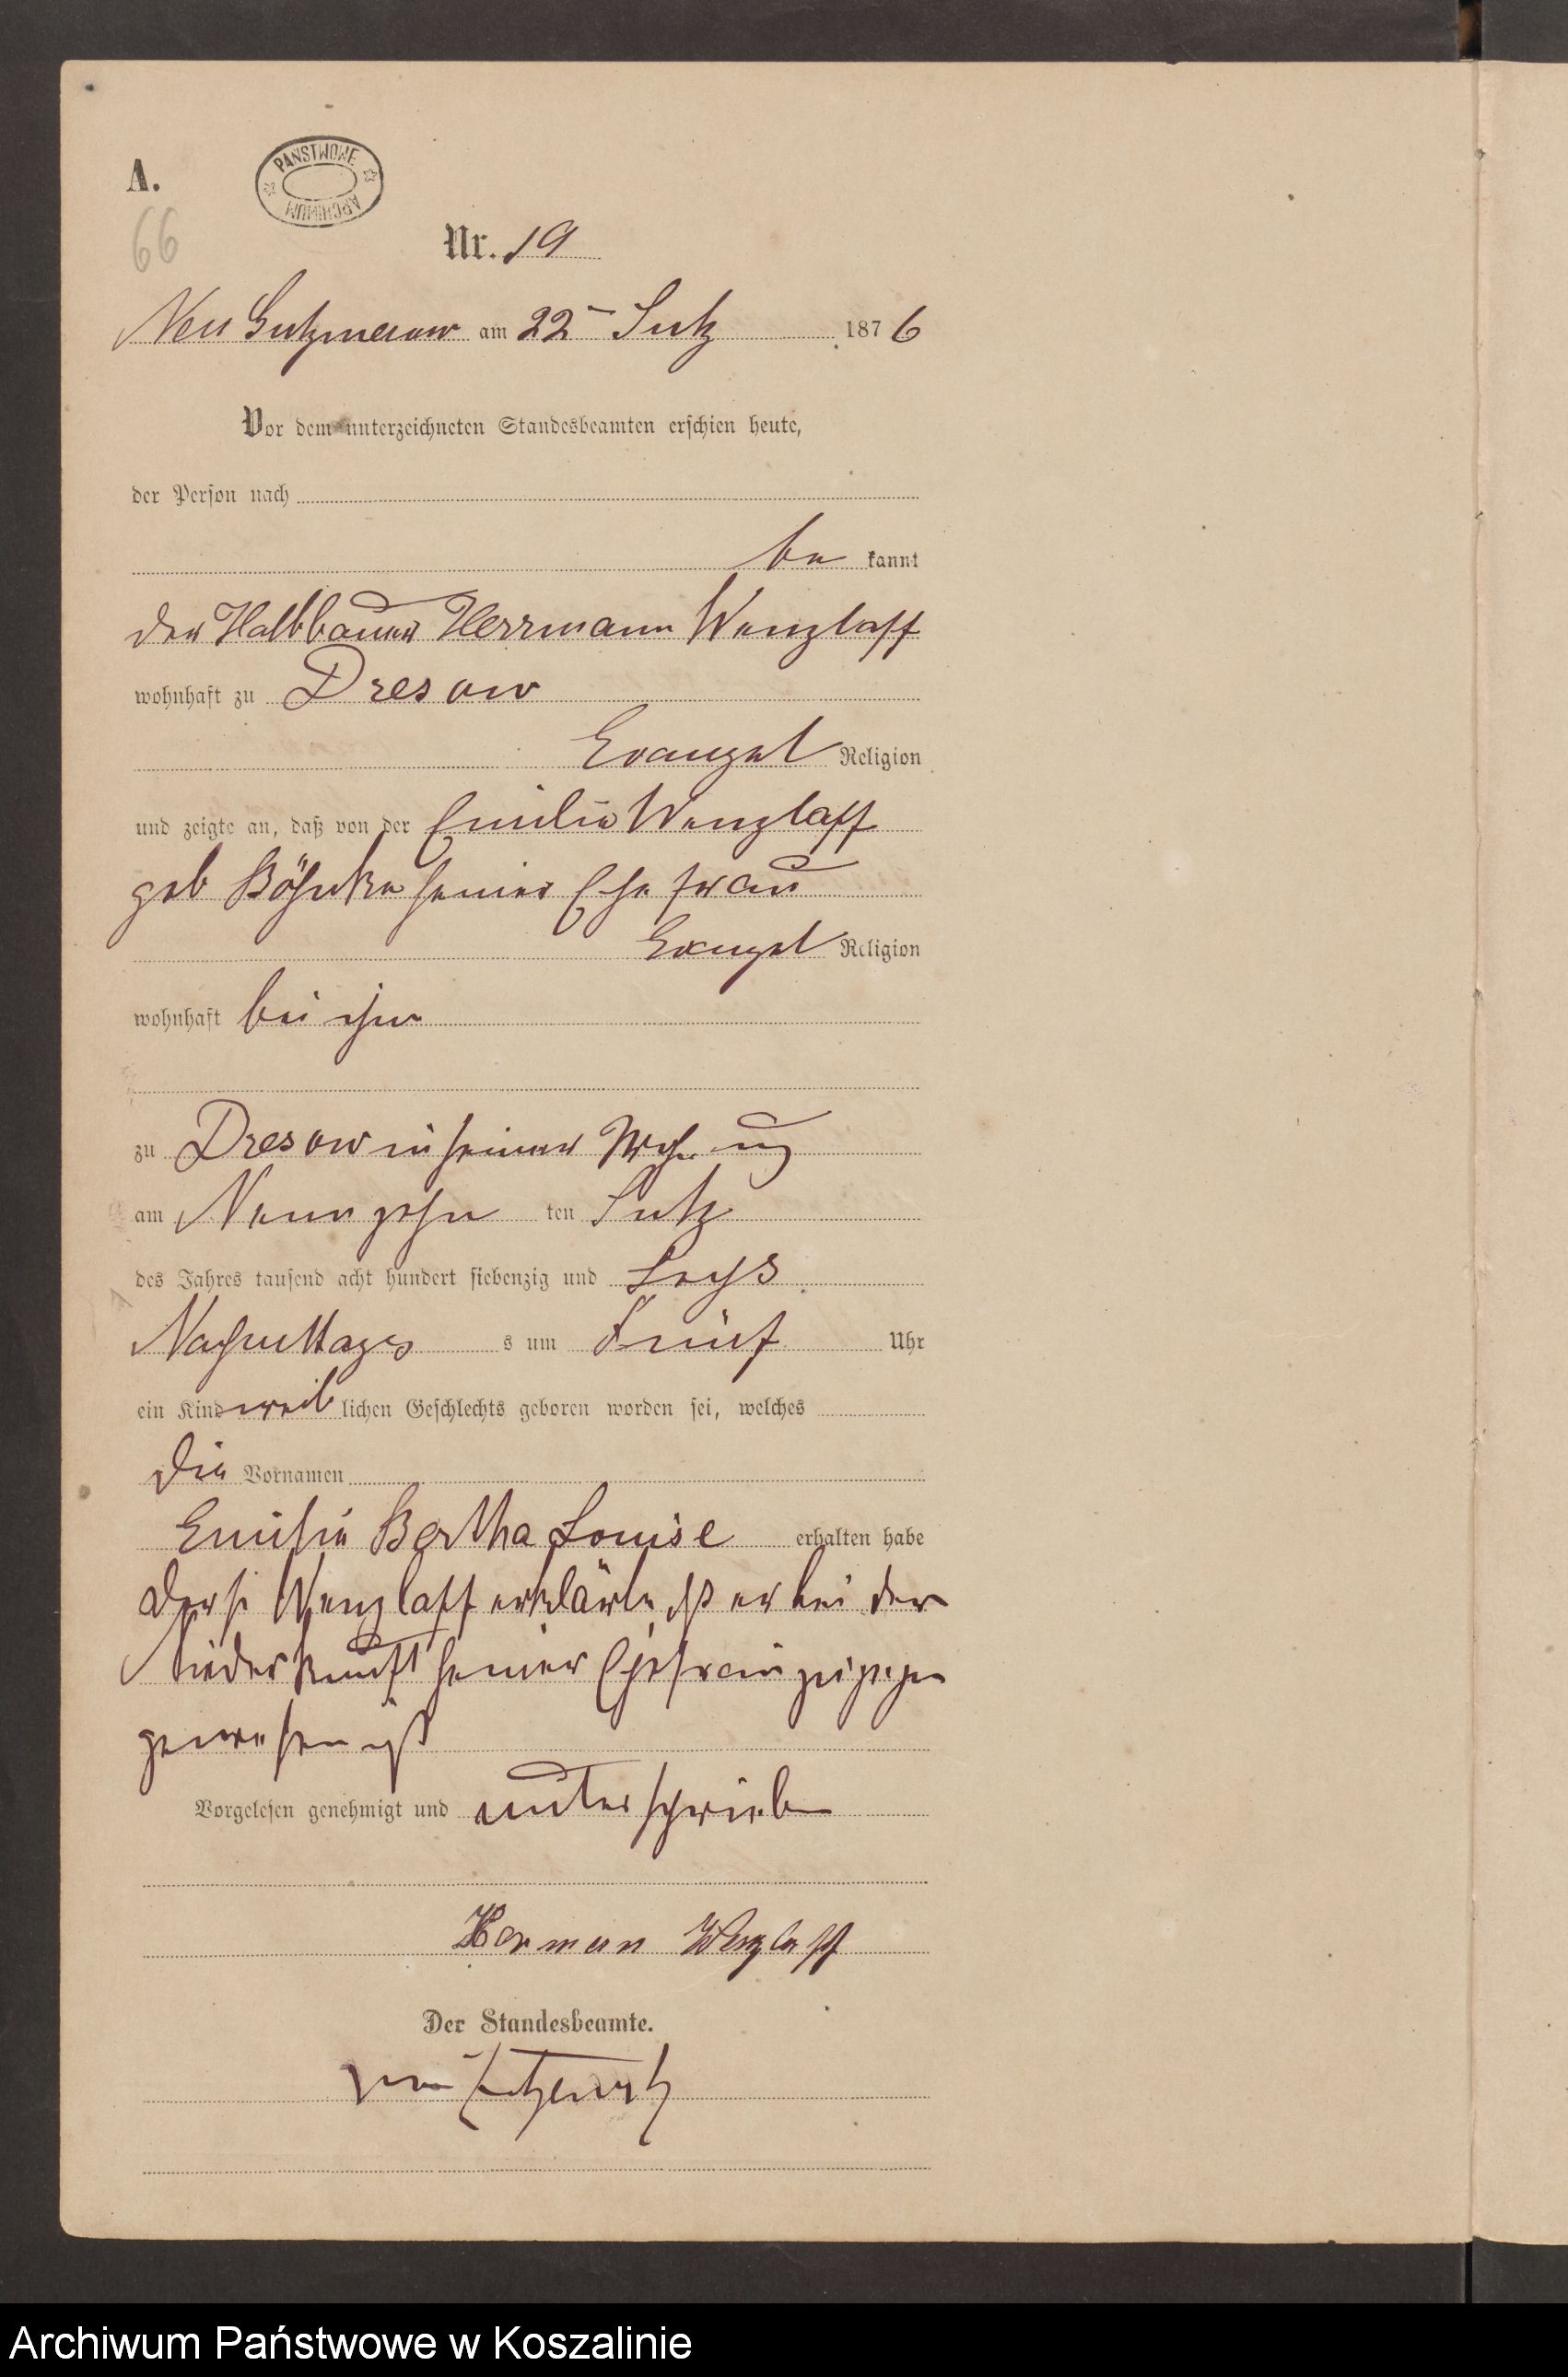 A.
PAŃSTWOWE ARCHIWUM
66
Nr. 19
Neu Gutzmerow am 22 1876
Vor dem unterzeichneten Standesbeamten erschien heute,
der Person nach
be kannt
der Halbbauer Herrmann Wenzlaff
wohnhaft zu Dresow
Evangel Religion
und zeigte an, daß von der Emilie Wenzlaff
geb Böhnke seiner Ehefrau
Evangel Religion
wohnhaft bei ihm
zu Dresow in seiner Wohnung
am Neunzehn ten
des Jahres tausend acht hundert siebenzig und Sechs
Nachmittages s um Fünf Uhr
ein Kind weib lichen Geschlechts geboren worden sei, welches
die Vornamen
Emilie Bertha Louise erhalten habe
Wenzlaff erklärte, daß er bei der
Niederkunft seiner Ehefrau zugegen
gewesen ist
Vorgelesen genehmigt und unterschrieben
Herman Wenzlaff
Der Standesbeamte.
Archiwum Państwowe w Koszalinie